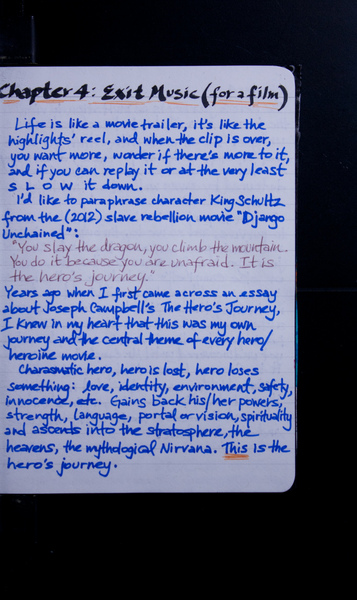 Chapter 4: Exit Music (for a film)
Life is like a movie trailer, it's like the
highlights' reel, and when the clip is over,
you want more, wonder if there's more to it,
and if you can replay it or at the very least
S L O W it down.
I'd like to paraphrase character King Schultz
from the (2012) slave rebellion movie "Django
Unchained":
"You slay the dragon, you climb the mountain.
You do it because you are unafraid. It is
the hero's journey."
Years ago when I first came across an essay
about Joseph Campbell's The Hero's Journey,
I knew in my heart that this was my own
journey and the central theme of every hero/
heroine movie.
Charasmatic hero, hero is lost, hero loses
something: love, identity, environment, safety,
innocence, etc. Gains back his/her powers,
strength, language, portal or vision, spirituality
and ascends into the stratosphere, the
heavens, the mythological Nirvana. This is the
hero's journey.